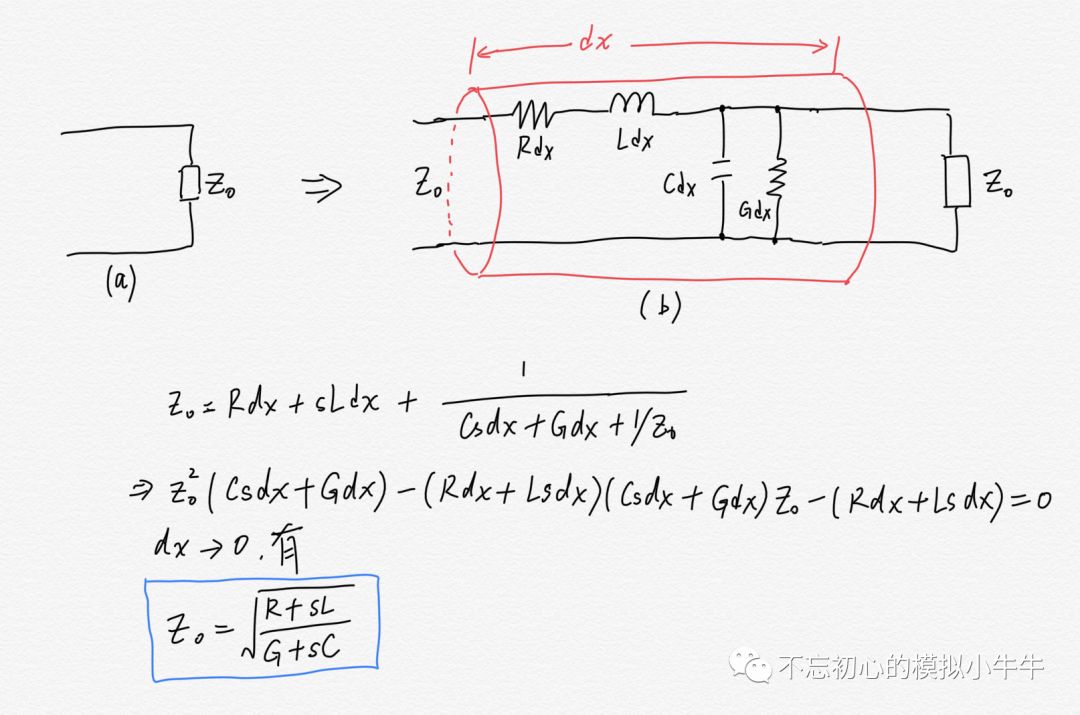 dx
Rdx
Ldx
Cdx
Gdx
Z₀
⇒
Z₀
Z₀
(a)
(b)
Z₀ = Rdx + sLdx + 1/(Csdx + Gdx + 1/Z₀)
⇒ Z₀²(Csdx + Gdx) − (Rdx + Lsdx)(Csdx + Gdx)Z₀ − (Rdx + Lsdx) = 0
dx → 0 . 有
Z₀ = √((R + sL)/(G + sC))
不忘初心的模拟小牛牛